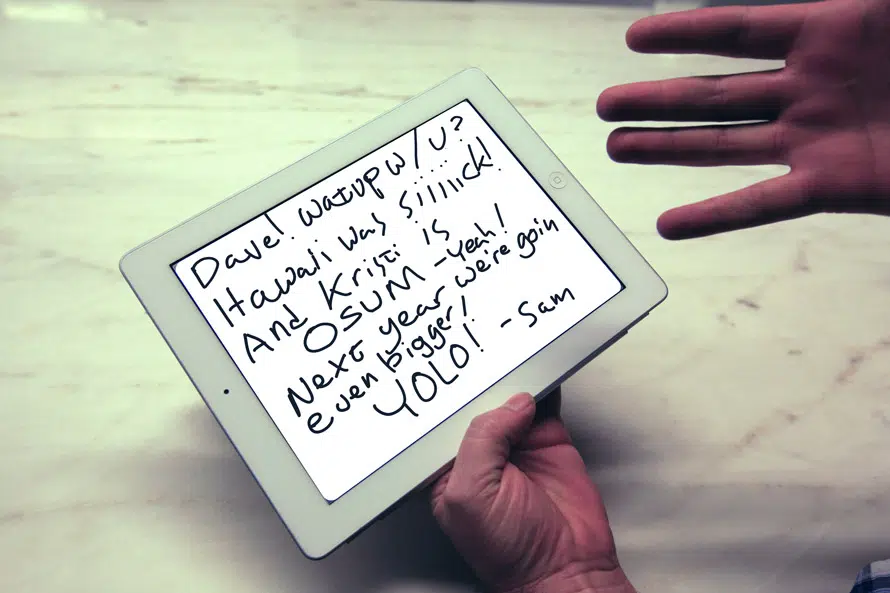 Dave! watup w/u?
Hawaii was siiiiick!
And Kristi is
OSUM - Yeah!
Next year we're goin
even bigger!
YOLO! - Sam